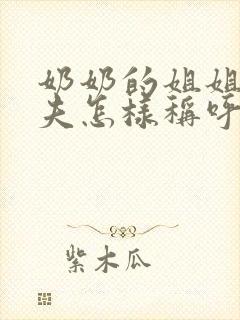 奶奶的姐姐
夫怎样称呼
紫木瓜